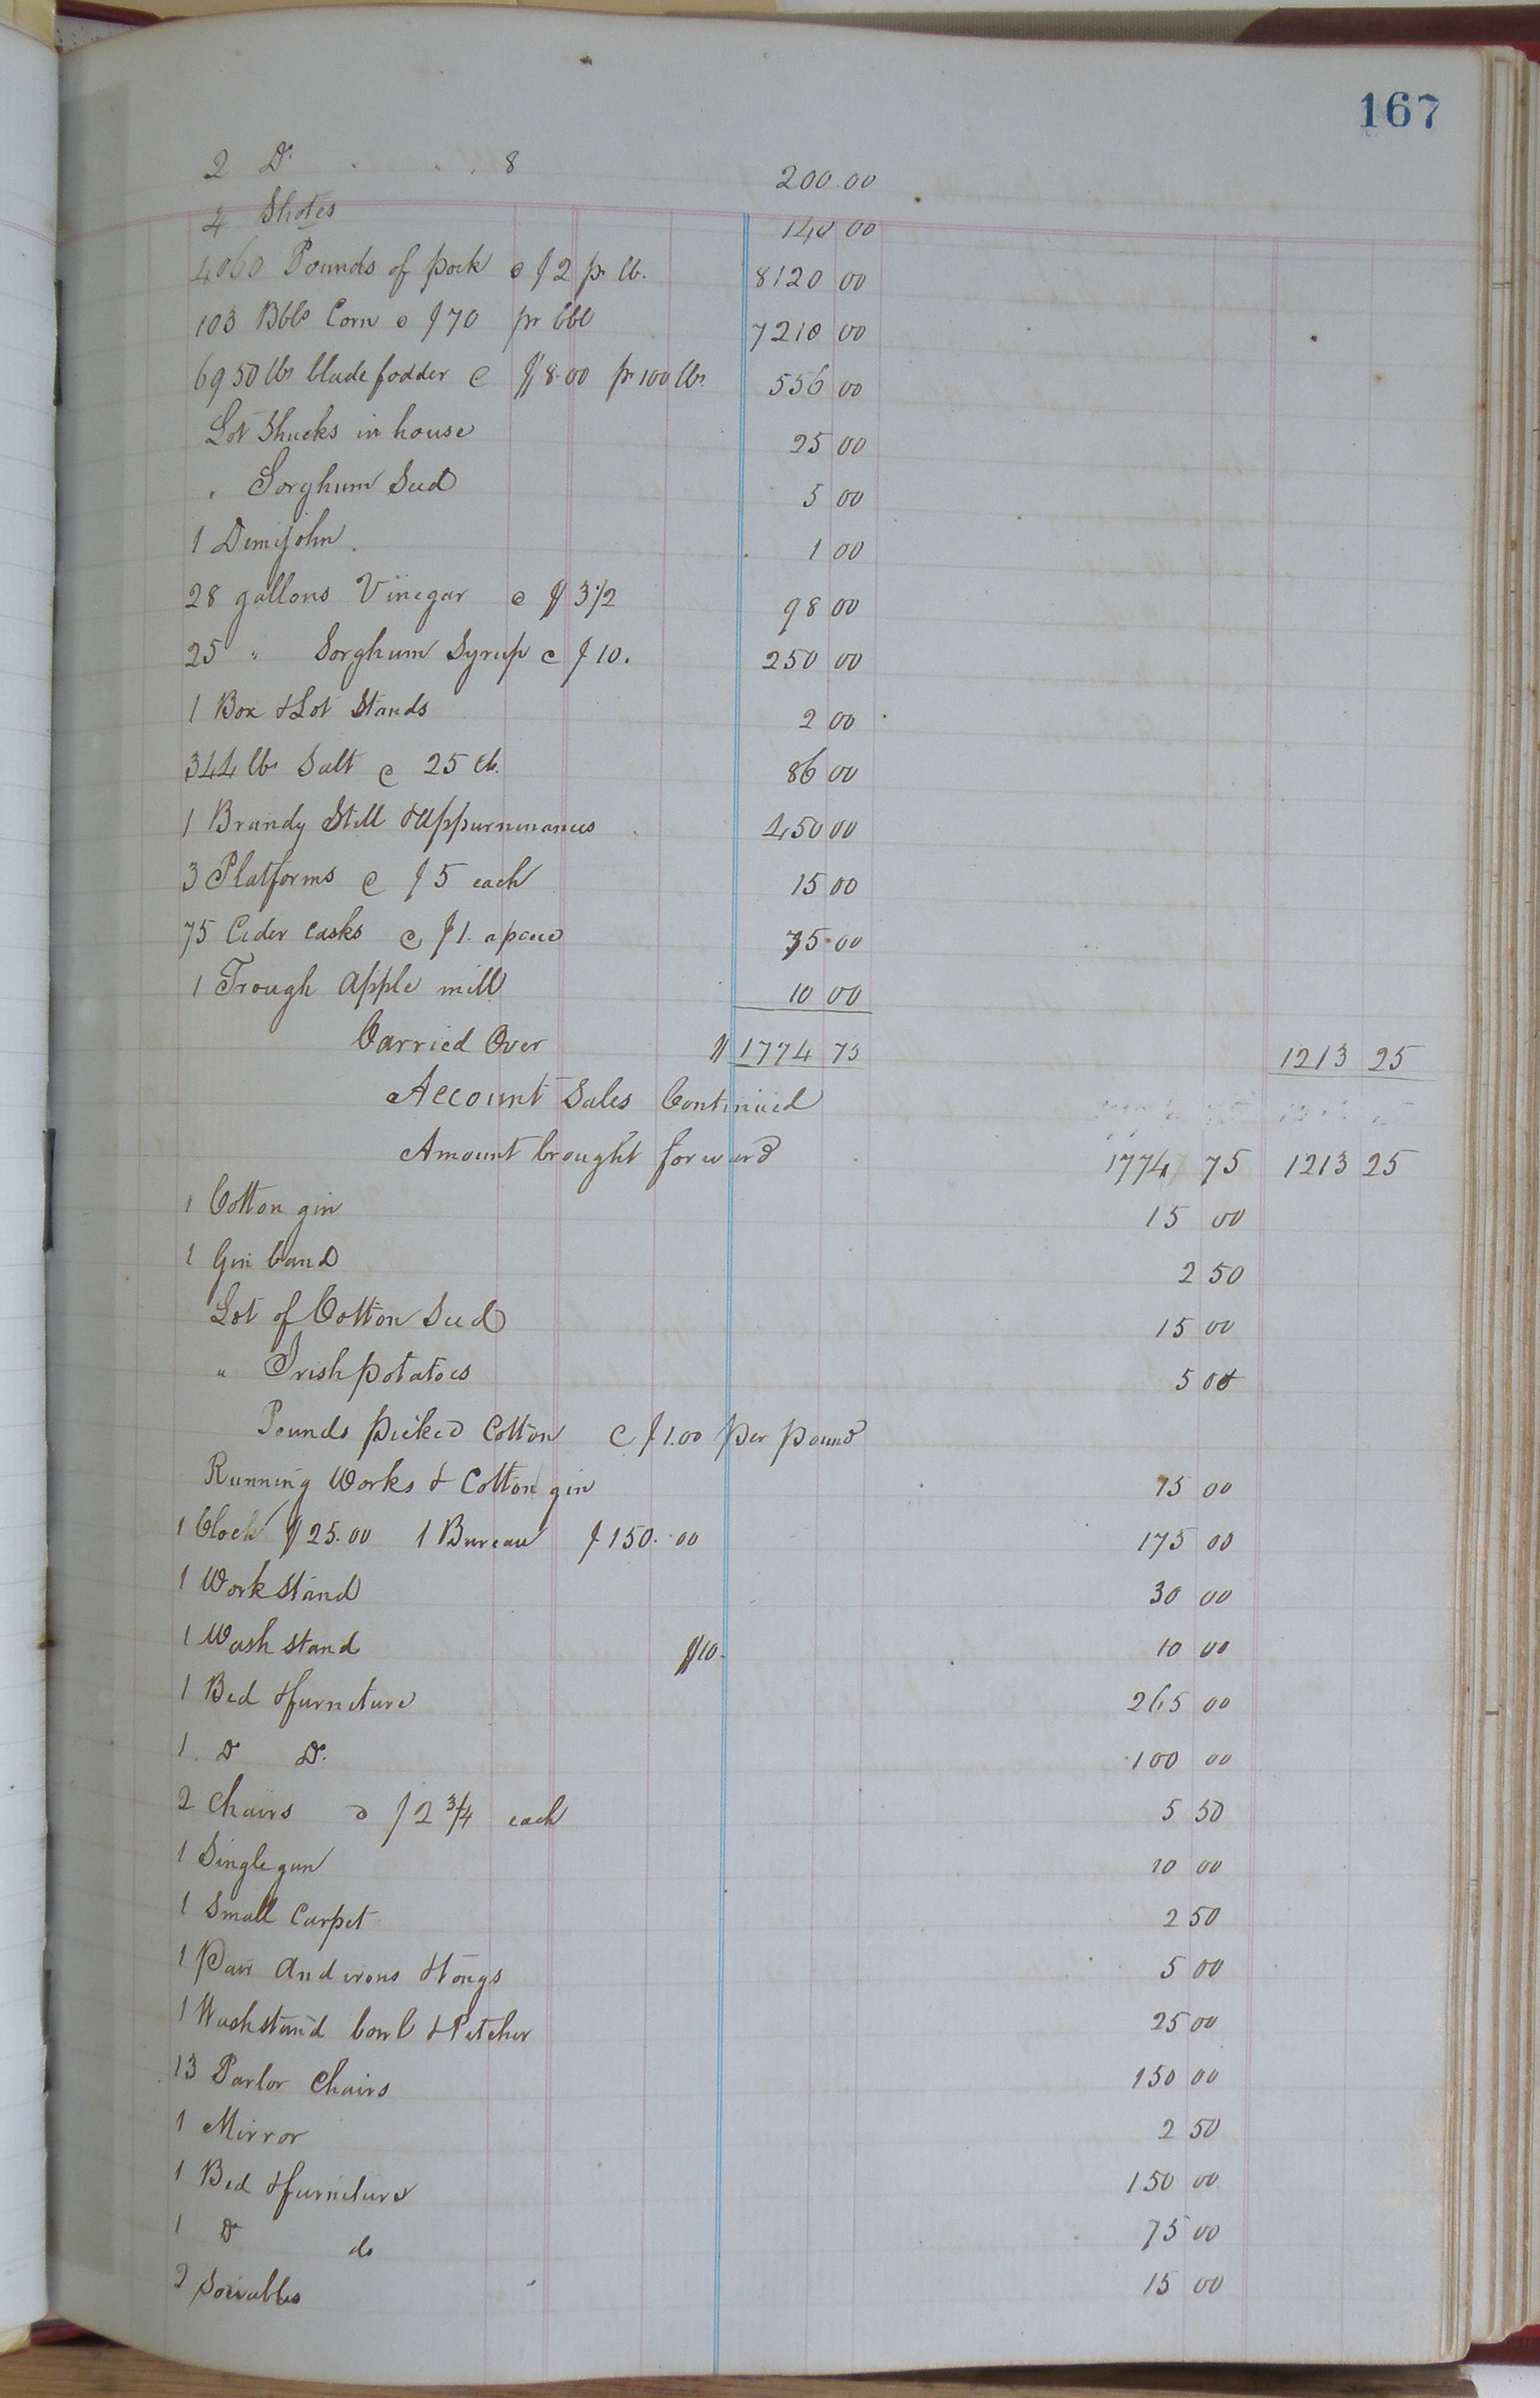 167
2 Do " " 8 200 00
4 Shotes 140 00
4060 Pounds of pork @ $2 pr lb. 8120 00
103 Bbls Corn @ $70 pr bbl 7210 00
6950 lbs blade fodder @ $8.00 pr 100 lbs. 556 00
Lot Shucks in house 25 00
" Sorghum Seed 5 00
1 Demijohn 1 00
28 gallons Vinegar @ $3 1/2 98 00
25 " Sorghum Syrup @ $10. 250 00
1 Box & Lot Stands 2 00
344 lbs Salt @ 25 cts. 86 00
1 Brandy Still & Appurninances 450 00
3 Platforms @ $5 each 15 00
75 Cider Casks @ $1. apeice 75 00
1 Trough Apple mill 10 00
Carried Over $1774 75 1213 25
Account Sales Continued
Amount brought forward 1774 75 1213 25
1 Cotton gin 15 00
1 Gin band 2 50
Lot of Cotton Seed 15 00
" Irish potatoes 5 00
Pounds picked Cotton @ $1.00 per pound
Running Works & Cotton gin 75 00
1 Clock $25.00 1 Bureau $150.00 175 00
1 Work stand 30 00
1 Wash stand $10. 10 00
1 Bed & furniture 265 00
1 Do Do. 100 00
2 Chairs @ $2 3/4 each 5 50
1 Single gun 10 00
1 Small Carpet 2 50
1 Pair Andirons & tongs 5 00
1 Washstand bowl & Pitcher 25 00
13 Parlor Chairs 150 00
1 Mirror 2 50
1 Bed & furniture 150 00
1 Do do 75 00
2 Sociables 15 00